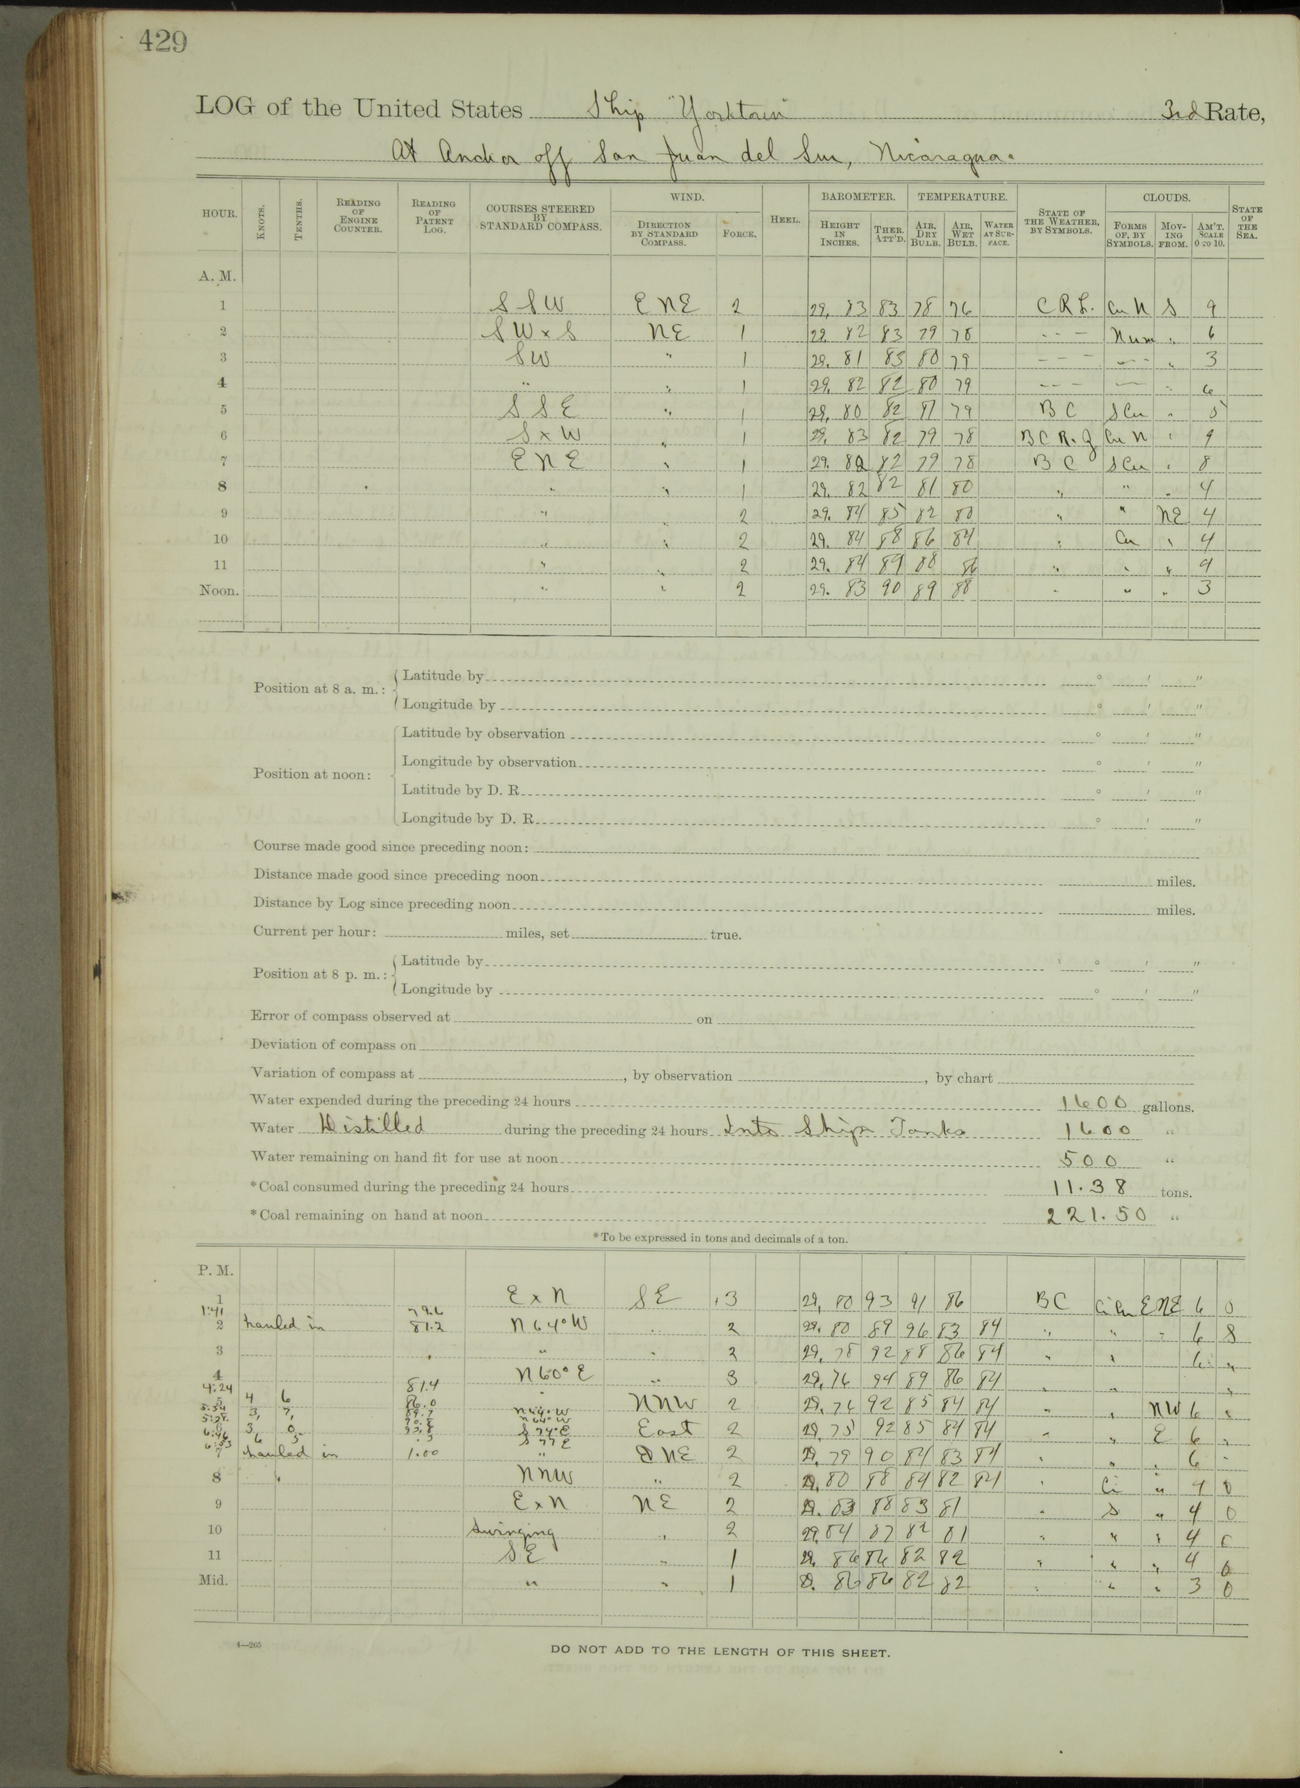 429
LOG of the United States Ship "Yorktown" 3rd Rate,
At Anchor off San Juan del Sur, Nicaragua.
HOUR. KNOTS. TENTHS. READING OF ENGINE COUNTER. READING OF PATENT LOG. COURSES STEERED BY STANDARD COMPASS. WIND. DIRECTION BY STANDARD COMPASS. FORCE. HEEL. BAROMETER. HEIGHT IN INCHES. THER. ATT'D. TEMPERATURE. AIR, DRY BULB. AIR, WET BULB. WATER AT SURFACE. STATE OF THE WEATHER, BY SYMBOLS. CLOUDS. FORMS OF, BY SYMBOLS. MOVING FROM. AM'T. SCALE 0 TO 10. STATE OF THE SEA.
A. M.
1 S S W E N E 2 29. 83 83 78 76 C R L. Cu N S 9
2 S W x S N E 1 29. 82 83 79 78 - - - Num " 6
3 S W " 1 29. 81 83 80 79 - - - - - - " 3
4 " " 1 29. 82 82 80 79 - - - " 6
5 S S E " 1 29. 80 82 81 79 B C S Cu " 5
6 S x W " 1 29. 83 82 79 78 B C R. Q Cu N " 9
7 E N E " 1 29. 82 82 79 78 B C S Cu " 8
8 " " 1 29. 82 82 81 80 " " " 4
9 " " 2 29. 84 85 82 80 " " NE 4
10 " " 2 29. 84 88 86 84 " Cu " 4
11 " " 2 29. 84 89 88 86 " " " 4
Noon. " " 2 29. 83 90 89 88 " " " 3
Position at 8 a. m.: Latitude by ° ' "
Longitude by ° ' "
Position at noon: Latitude by observation ° ' "
Longitude by observation ° ' "
Latitude by D. R. ° ' "
Longitude by D. R. ° ' "
Course made good since preceding noon:
Distance made good since preceding noon miles.
Distance by Log since preceding noon miles.
Current per hour: miles, set true.
Position at 8 p. m.: Latitude by ° ' "
Longitude by ° ' "
Error of compass observed at on
Deviation of compass on
Variation of compass at , by observation , by chart
Water expended during the preceding 24 hours 1600 gallons.
Water Distilled during the preceding 24 hours Into Ships Tanks 1600 "
Water remaining on hand fit for use at noon 500 "
*Coal consumed during the preceding 24 hours 11.38 tons.
*Coal remaining on hand at noon 221.50 "
*To be expressed in tons and decimals of a ton.
P. M.
1 E x N S E 3 29. 80 93 91 86 B C Ci Cu ENE 6 0
1:41 79.6
2 hauled in 81.2 N 64° W " 2 29. 80 89 96 83 84 " " " 6 8
3 " " 2 29. 78 92 88 86 84 " " 6 "
4 N 60° E " 3 29. 76 94 89 86 84 " " "
4:24 81.4
4 6 86.0 " NNW 2 29. 76 92 85 84 84 " " NW 6 "
3 0 S 74° E East 2 29. 75 92 85 84 84 " " E 6 "
6 5 S 77 E
7 hauled in 1.00 " NE 2 29. 79 90 84 83 84 " " " 6 "
8 NNW " 2 29. 80 88 84 82 84 " Ci " 4 0
9 E x N NE 2 29. 83 88 83 81 " S " 4 0
10 Swinging " 2 29. 84 87 82 81 " " " 4 0
11 S E " 1 29. 86 86 82 82 " " " 4 0
Mid. " " 1 29. 86 86 82 82 " " " 3 0
4—265
DO NOT ADD TO THE LENGTH OF THIS SHEET.